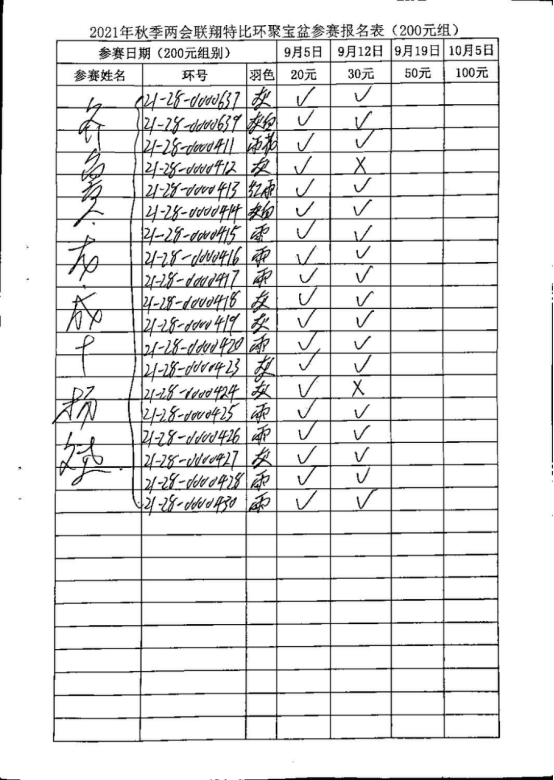 2021年秋季两会联翔特比环聚宝盆参赛报名表（200元组）
参赛日期（200元组别） 9月5日 9月12日 9月19日 10月5日
参赛姓名 环号 羽色 20元 30元 50元 100元
21-28-0000637 灰 ✓ ✓
21-28-0000639 灰白 ✓ ✓
21-28-0000411 雨花 ✓ ✓
21-28-0000412 灰 ✓ X
21-28-0000413 红雨 ✓ ✓
21-28-0000414 灰白 ✓ ✓
21-28-0000415 雨 ✓ ✓
21-28-0000416 雨 ✓ ✓
21-28-0000417 雨 ✓ ✓
21-28-0000418 灰 ✓ ✓
21-28-0000419 灰 ✓ ✓
21-28-0000420 雨 ✓ ✓
21-28-0000423 灰 ✓ ✓
21-28-0000424 灰 ✓ X
21-28-0000425 雨 ✓ ✓
21-28-0000426 雨 ✓ ✓
21-28-0000427 灰 ✓ ✓
21-28-0000428 雨 ✓ ✓
21-28-0000430 雨 ✓ ✓